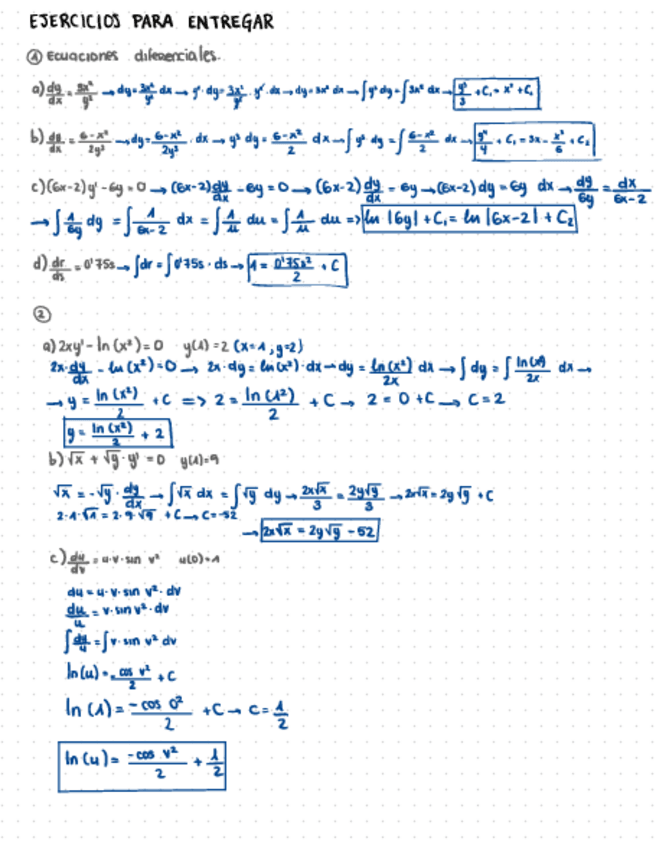 EJERCICIOS PARA ENTREGAR
① Ecuaciones diferenciales.
a) dy/dx = 3x²/y² → dy = 3x²/y² dx → y² · dy = 3x²/y² · y² · dx → dy = 3x² dx → ∫y² dy = ∫3x² dx → y³/3 + C₁ = x³ + C₂
b) dy/dx = 6-x²/2y³ → dy = 6-x²/2y³ · dx → y³ dy = 6-x²/2 dx → ∫y³ dy = ∫6-x²/2 dx → y⁴/4 + C₁ = 3x - x³/6 + C₂
c) (6x-2)y' - 6y = 0 → (6x-2) dy/dx - 6y = 0 → (6x-2) dy/dx = 6y → (6x-2) dy = 6y dx → dy/6y = dx/6x-2
→ ∫1/6y dy = ∫1/6x-2 dx = ∫1/u du = ∫1/u du => ln |6y| + C₁ = ln |6x-2| + C₂
d) dr/ds = 0'75s → ∫dr = ∫0'75s · ds → r = 0'75s²/2 + C
②
a) 2xy' - ln(x²) = 0 y(1) = 2 (x=1, y=2)
2x · dy/dx - ln(x²) = 0 → 2x · dy = ln(x²) · dx → dy = ln(x²)/2x dx → ∫dy = ∫ln(x²)/2x dx →
→ y = ln(x²)/2 + C => 2 = ln(1²)/2 + C → 2 = 0 + C → C = 2
y = ln(x²)/2 + 2
b) √x + √y · y' = 0 y(1) = 9
√x = -√y · dy/dx → ∫√x dx = ∫√y dy → 2x√x/3 = 2y√y/3 → 2x√x = 2y√y + C
2·1·√1 = 2·9·√9 + C → C = -52
→ 2x√x = 2y√y - 52
c) du/dv = u·v·sin v² u(0) = 1
du = u·v·sin v² · dv
du/u = v·sin v² · dv
∫du/u = ∫v·sin v² dv
ln(u) = -cos v²/2 + C
ln(1) = -cos 0²/2 + C → C = 1/2
ln(u) = -cos v²/2 + 1/2